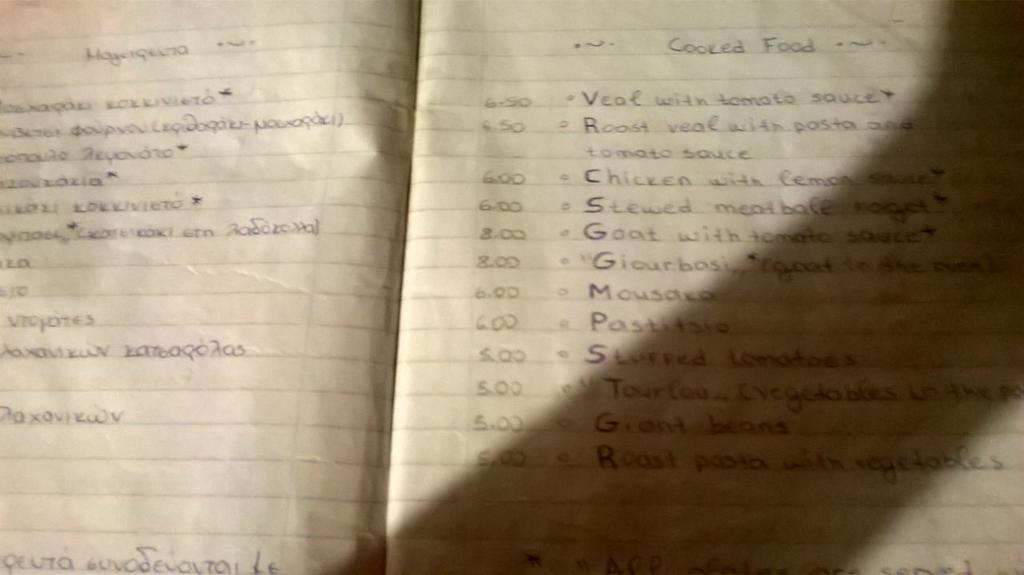 Μαγειρευτά
κοκκινιστό*
φούρνου (κριθαράκι-μοσχαράκι)
λεμονάτο*
κοκκινιστό*
(κατσικάκι στη λαδόκολλα)
ντομάτες
λαχανικών κατσαρόλας
λαχανικών
συνοδεύονται με
Cooked Food
6.50 Veal with tomato sauce*
6.50 Roast veal with pasta and
tomato sauce
6.00 Chicken with lemon sauce*
6.00 Stewed meatball
8.00 Goat with tomato sauce*
8.00 "Giourbasi„*(goat in the oven)
6.00 Mousaka
6.00 Pastitsio
5.00 Sturred tomatoes
5.00 "Tourlou„ (vegetables in the
5.00 Giant beans
5.00 Roast pasta with vegetables
* "All are served